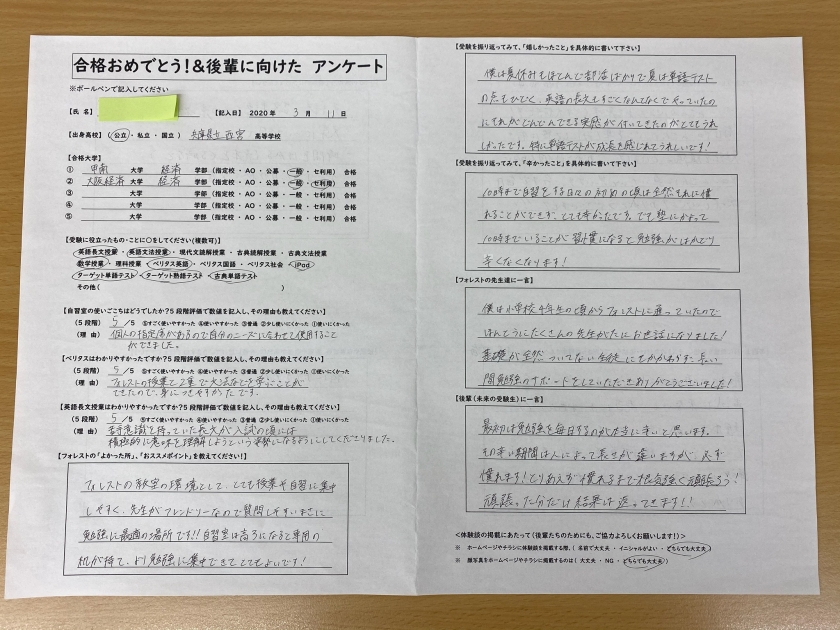 合格おめでとう！&後輩に向けた アンケート
※ボールペンで記入してください
【氏 名】
【記入日】 2020 年 3 月 11 日
【出身高校】（公立・私立・国立） 兵庫県立西宮 高等学校
【合格大学】
① 甲南 大学 経済 学部（指定校・AO・公募・一般・セ利用）合格
② 大阪経済 大学 経済 学部（指定校・AO・公募・一般・セ利用）合格
③ 大学 学部（指定校・AO・公募・一般・セ利用）合格
④ 大学 学部（指定校・AO・公募・一般・セ利用）合格
⑤ 大学 学部（指定校・AO・公募・一般・セ利用）合格
【受験に役立ったもの・ことに○をしてください（複数可）】
英語長文授業・英語文法授業・現代文読解授業・古典読解授業・古典文法授業
数学授業・理科授業・ベリタス英語・ベリタス国語・ベリタス社会・iPod
ターゲット単語テスト・ターゲット熟語テスト・古典単語テスト
その他（ ）
【自習室の使いごこちはどうでしたか？5段階評価で数値を記入し、その理由も教えてください】
（5段階） 5 /5 ⑤すごく使いやすかった ④使いやすかった ③普通 ②少し使いにくかった ①使いにくかった
（理 由） 個人の指定席があるので自分のニーズに合わせて使用すること
ができました。
【ベリタスはわかりやすかったですか？5段階評価で数値を記入し、その理由も教えてください】
（5段階） 5 /5 ⑤すごく使いやすかった ④使いやすかった ③普通 ②少し使いにくかった ①使いにくかった
（理 由） フォレストの授業で2重で文法などを学ぶことが
できたので、身につきやすかったです。
【英語長文授業はわかりやすかったですか？5段階評価で数値を記入し、その理由も教えてください】
（5段階） 5 /5 ⑤すごく使いやすかった ④使いやすかった ③普通 ②少し使いにくかった ①使いにくかった
（理 由） 苦手意識を持っていた長文が入試の頃には
積極的に意味を理解しようという姿勢になるようにしてくださりました。
【フォレストの「よかった所」、「おススメポイント」を教えてください！】
フォレストの教室の環境として、とても授業や自習に集中
しやすく、先生がフレンドリーなので質問しやすいまさに
勉強に最適の場所です!!自習室は高3になると専用の
机が持て、より勉強に集中できてとてもよいです！
【受験を振り返ってみて、「嬉しかったこと」を具体的に書いて下さい】
僕は夏休みもほとんど部活ばかりで夏は単語テスト
の点もひどく、英語の長文もすごくなんとなくでやっていたの
にそれがどんどんできる実感が付いてきたのがとてもうれ
しかったです。特に単語テストが成長を感じれてうれしいです！
【受験を振り返ってみて、「辛かったこと」を具体的に書いて下さい】
10時まで自習をする日々の初めの頃は全然それに慣
れることができず、とても辛かったです。でも塾にかよって
10時までいることが習慣になると勉強がはかどり
辛くなくなります！
【フォレストの先生達に一言】
僕は小学校4年生の頃からフォレストに通っていたので
ほんとうにたくさんの先生がたにお世話になりました！
基礎が全然ついてない生徒にもかかわらず、長い
間勉強のサポートをしていただきありがとうございました！
【後輩（未来の受験生）に一言】
最初は勉強を毎日するのが本当に辛いと思います。
その辛い期間は人によって長さが違いますが、必ず
慣れます！とりあえず慣れるまで根気強く頑張ろう！
頑張った分だけ結果は返ってきます!!
＜体験談の掲載にあたって（後輩たちのためにも、ご協力よろしくお願いします！）＞
※ ホームページやチラシに体験談を掲載する際、（ 名前で大丈夫 ・ イニシャルがよい ・ どちらでも大丈夫 ）
※ 顔写真をホームページやチラシに掲載するのは（ 大丈夫 ・ NG ・ どちらでも大丈夫 ）